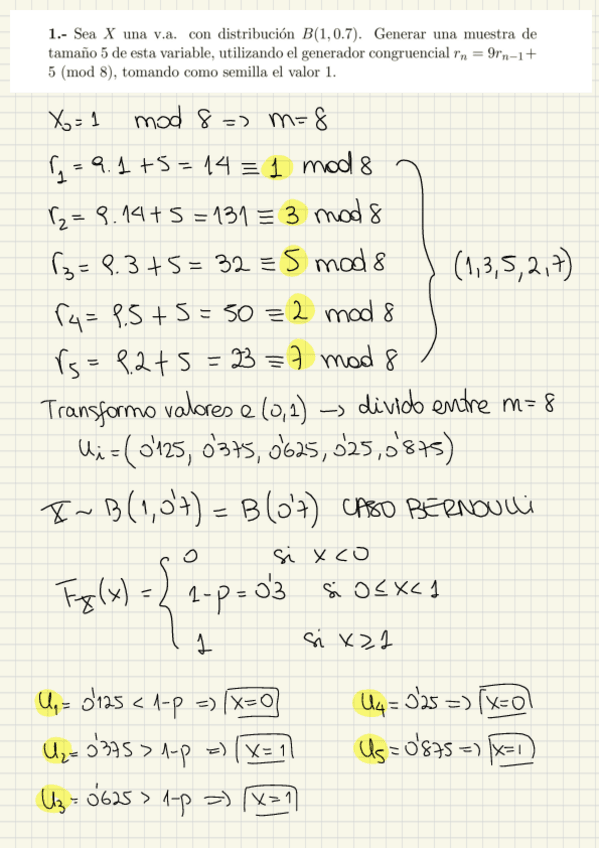 1.- Sea X una v.a. con distribución B(1, 0.7). Generar una muestra de
tamaño 5 de esta variable, utilizando el generador congruencial rₙ = 9rₙ₋₁+
5 (mod 8), tomando como semilla el valor 1.
X₀ = 1 mod 8 => m = 8
r₁ = 9.1 + 5 = 14 ≡ 1 mod 8
r₂ = 9.14 + 5 = 131 ≡ 3 mod 8
r₃ = 9.3 + 5 = 32 ≡ 5 mod 8
(1,3,5,2,7)
r₄ = 9.5 + 5 = 50 ≡ 2 mod 8
r₅ = 9.2 + 5 = 23 ≡ 7 mod 8
Transformo valores e (0,1) → divido entre m = 8
Uᵢ = (0'125, 0'375, 0'625, 0'25, 0'875)
X ~ B(1, 0'7) = B(0'7) CASO BERNOULLI
0 si x < 0
F_X(x) = { 1-p = 0'3 si 0 ≤ x < 1
1 si x ≥ 1
U₁ = 0'125 < 1-p => x=0
U₂ = 0'375 > 1-p => x=1
U₃ = 0'625 > 1-p => x=1
U₄ = 0'25 => x=0
U₅ = 0'875 => x=1